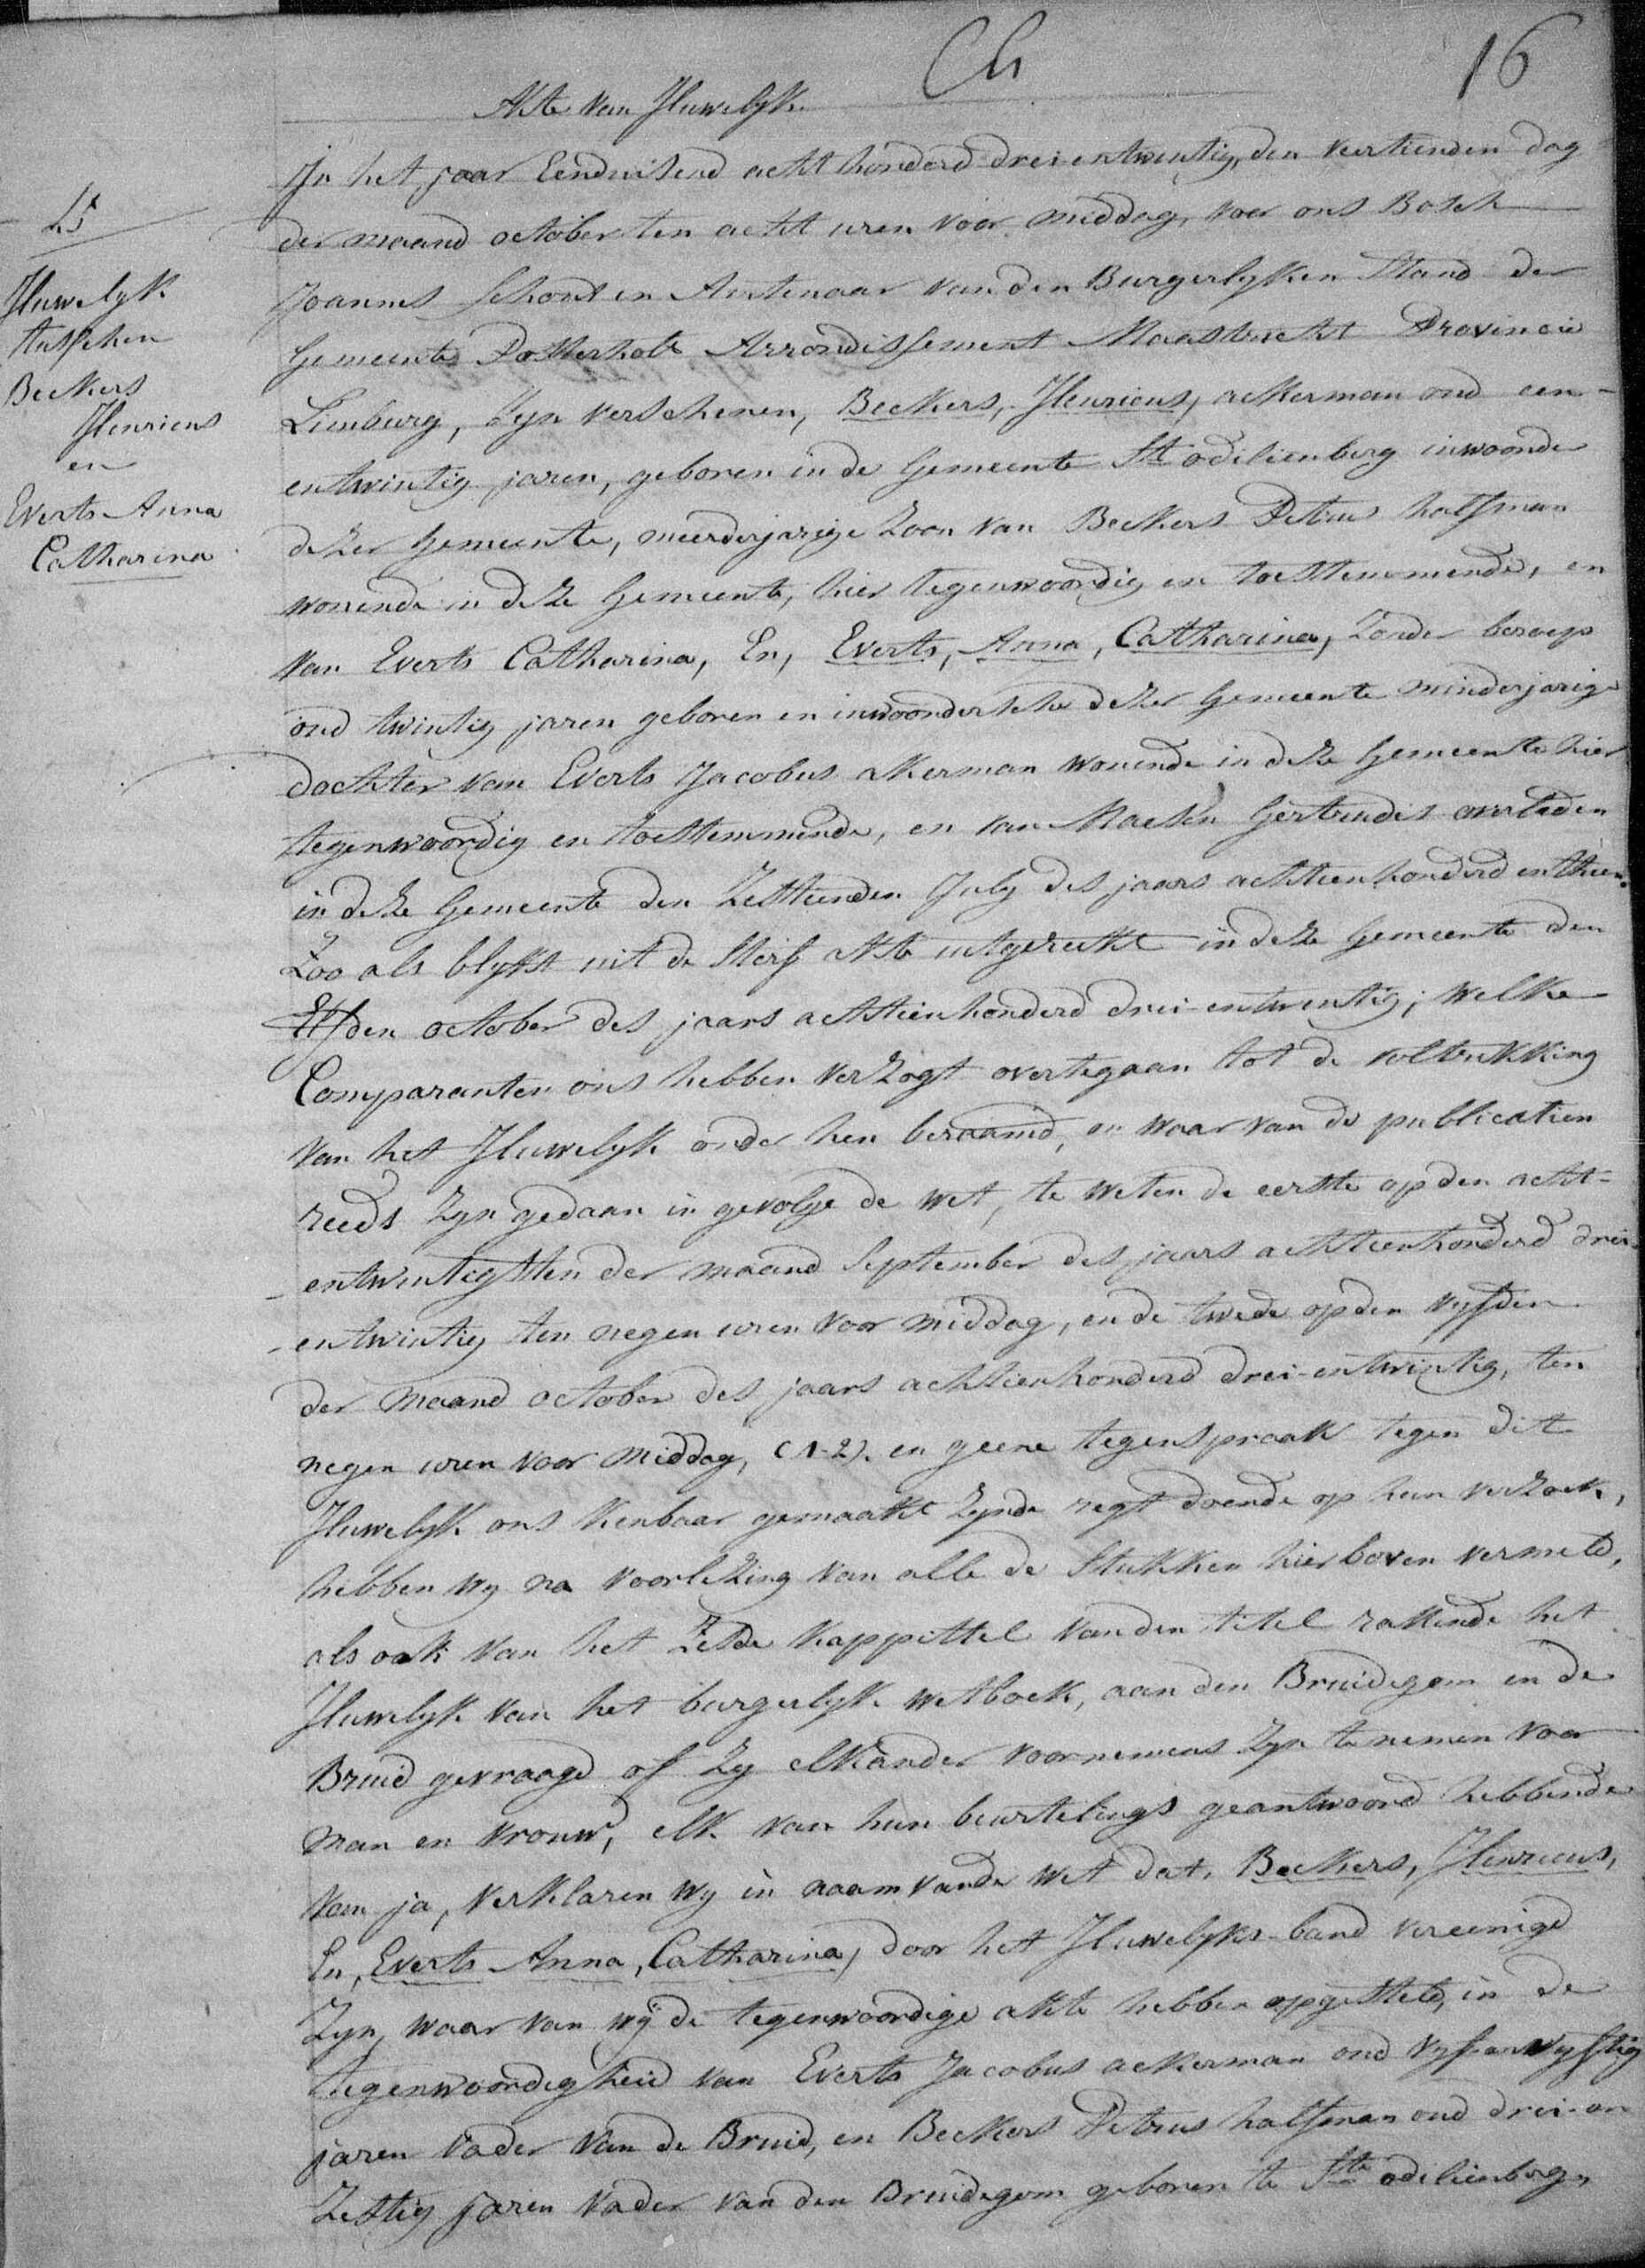 Ch
16
Akte van Huwelyk
In het jaar Eenduisend acht honderd drei-entwentig, den veertienden dag
der maand october ten acht uren voor middag, voor ons Bosch
Joannes schout en Amtenaar van den Burgerlyken Stand der
Gemeente Posterholt Arrondissement Maastricht Provincie
Limburg, Zyn verschenen, Beckers, Henricus, ackerman oud een-
entwintig jaren, geboren in de Gemeente St odilienberg inwoonder
dezer Gemeente, meerderjarige Zoon van Beckers Petrus halfman
wonende in deze Gemeente, hier tegenwoordig en toestemmende, en
van Everts Catharina, En, Everts, Anna, Catharina, Zonder beroep
oud twintig jaren geboren en inwoondersche dezer Gemeente minderjarige
dochter van Everts Jacobus akerman wonende in deze Gemeente hier
tegenwoordig en toestemmende, en van Gertrudis overleden
in deze Gemeente den Zesteenden July des jaars achtienhonderd en thien.
Zoo als blykt uit de Sterf akte uitgereikt in deze Gemeente den
Elfden october des jaars achtienhonderd drei-entwentig; welke
Comparanten ons hebben verzogt overtegaan tot de voltrekking
van het Huwelyk onder hen beraamd, en waar van de publicatien
reeds Zyn gedaan in gevolge de wet, te weten de eerste op den acht-
-entwintigsten der maand September des jaars achtienhonderd drei-
-entwintig ten negen uren voor middag, en de twede op den vyfden
der maand october des jaars achtienhonderd drei-entwintig, ten
negen uren voor middag, (1-2). en geene tegenspraak tegen dit
Huwelyk ons kenbaar gemaakt zynde regt doende op hun verzoek,
hebben wy na voorlezing van alle de Stukken hier boven vermeld,
als ook van het Zesde kappittel van den titel rakende het
Huwelyk van het burgerlyk wetboek, aan den Bruidegom en de
Bruid gevraagd of Zy elkander voornemens Zyn te nemen voor
man en vrouw, elk van hun beurtelings geantwoord hebbende
van ja, verklaren wy in naam vande wet dat, Beckers, Henricus,
En, Everts Anna, Catharina, door het Huwelyks-band vereenigd
Zyn, waar van wy de tegenwoordige akte hebben opgesteld, in de
tegenwoordigheid van Everts Jacobus ackerman oud vyf-en vyftig
jaren vader van de Bruid, en Beckers Petrus halfman oud drei-en
Zestig jaren vader van den Bruidegom geboren te Ste odilienberg,
Huwelyk
tusschen
Beckers
Henricus
en
Everts Anna
Catharina